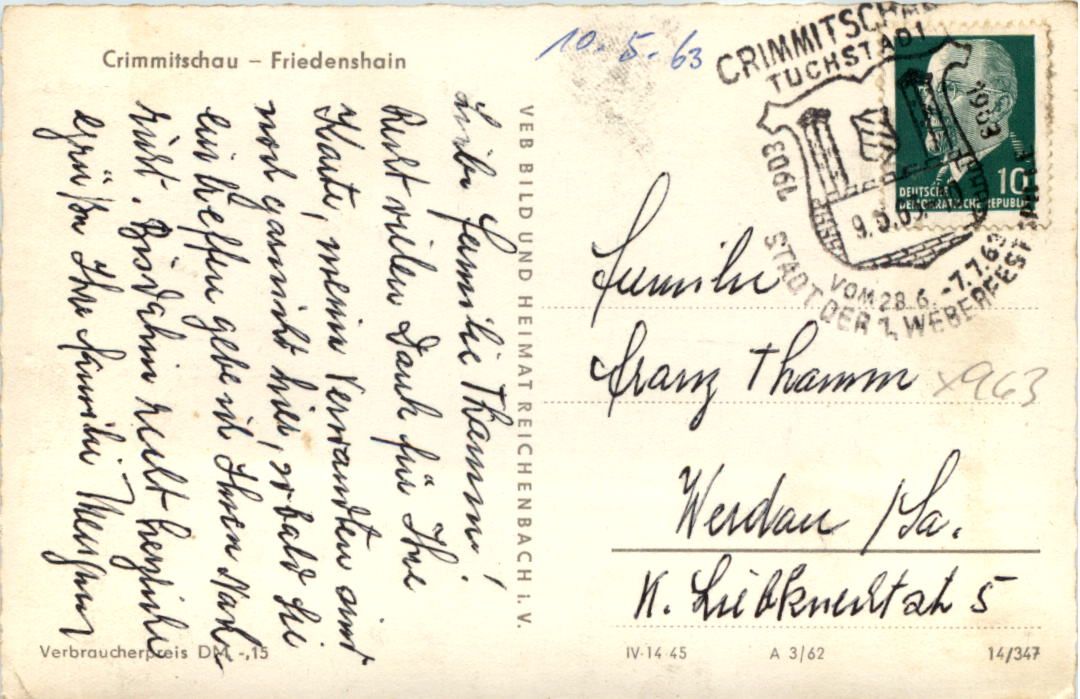 Crimmitschau – Friedenshain
10.5.63
Liebe Familie Thamm!
Recht vielen Dank für Ihre
Karte, meine Verwandten sind
noch gar nicht hier, sobald Sie
eintreffen gebe ich Ihnen Nach-
richt. Bis dahin recht herzliche
Grüße Ihre Familie
VEB BILD UND HEIMAT REICHENBACH i. V.
CRIMMITSCHAU
TUCHSTADT
1903
1963
9.5.63
VOM 28.6.-7.7.63
STADT DER 1. WEBERFEST
DEUTSCHE
DEMOKRATISCHE REPUBLIK
10
Familie
Franz Thamm
x963
Werdau /Sa.
K. Liebknechtstr 5
Verbraucherpreis DM -,15
IV-14-45 A 3/62 14/347